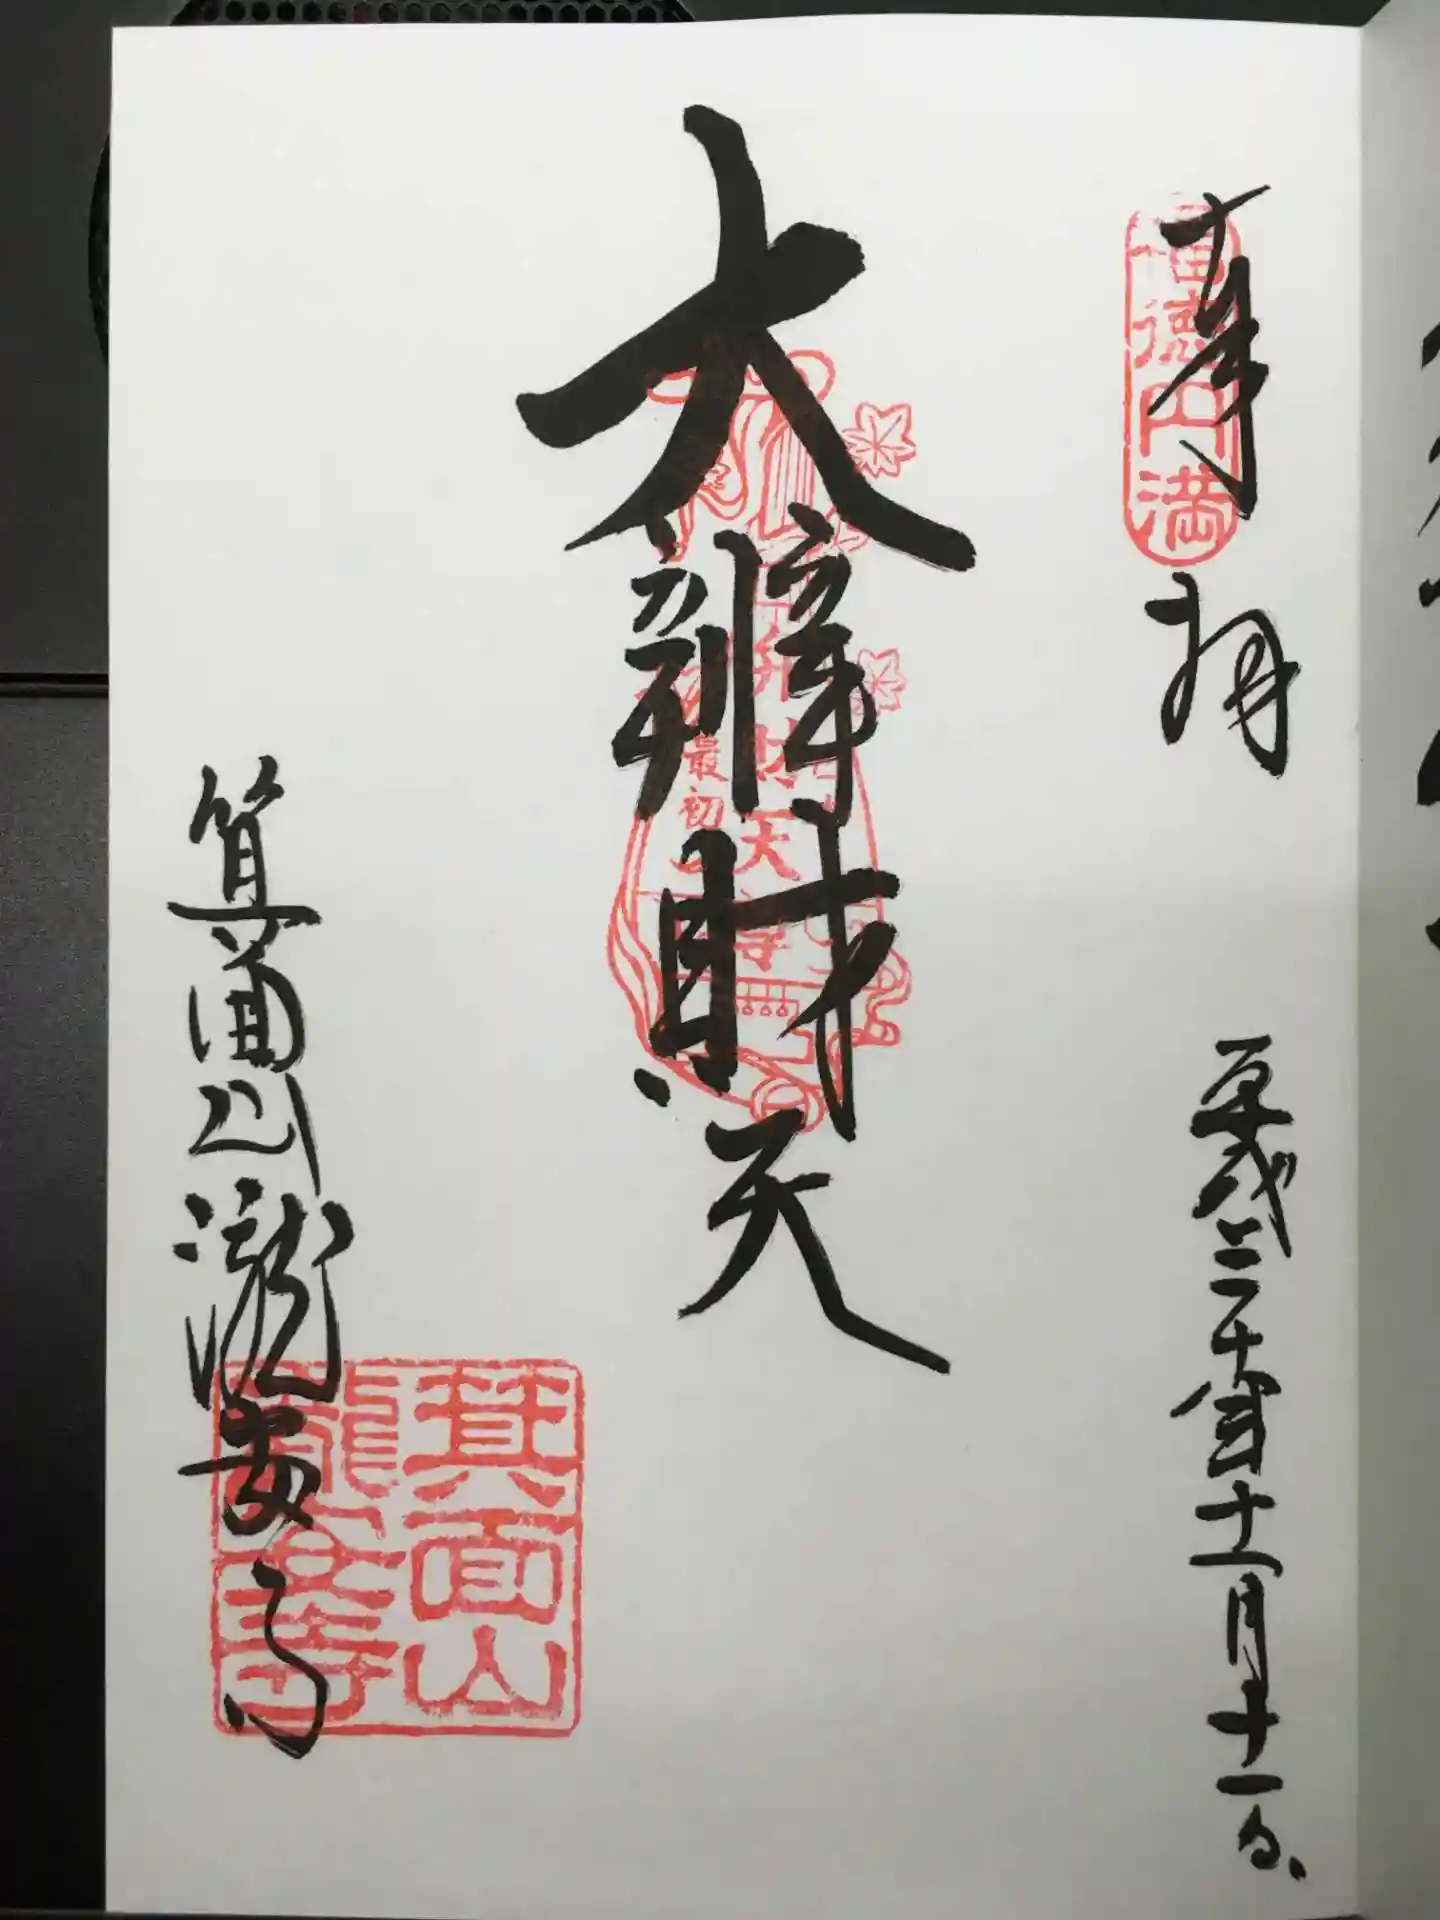 奉拝
福徳円満
平成三十年十一月十一日
大辨財天
財天
最初
箕面山瀧安寺
箕面山
瀧安寺